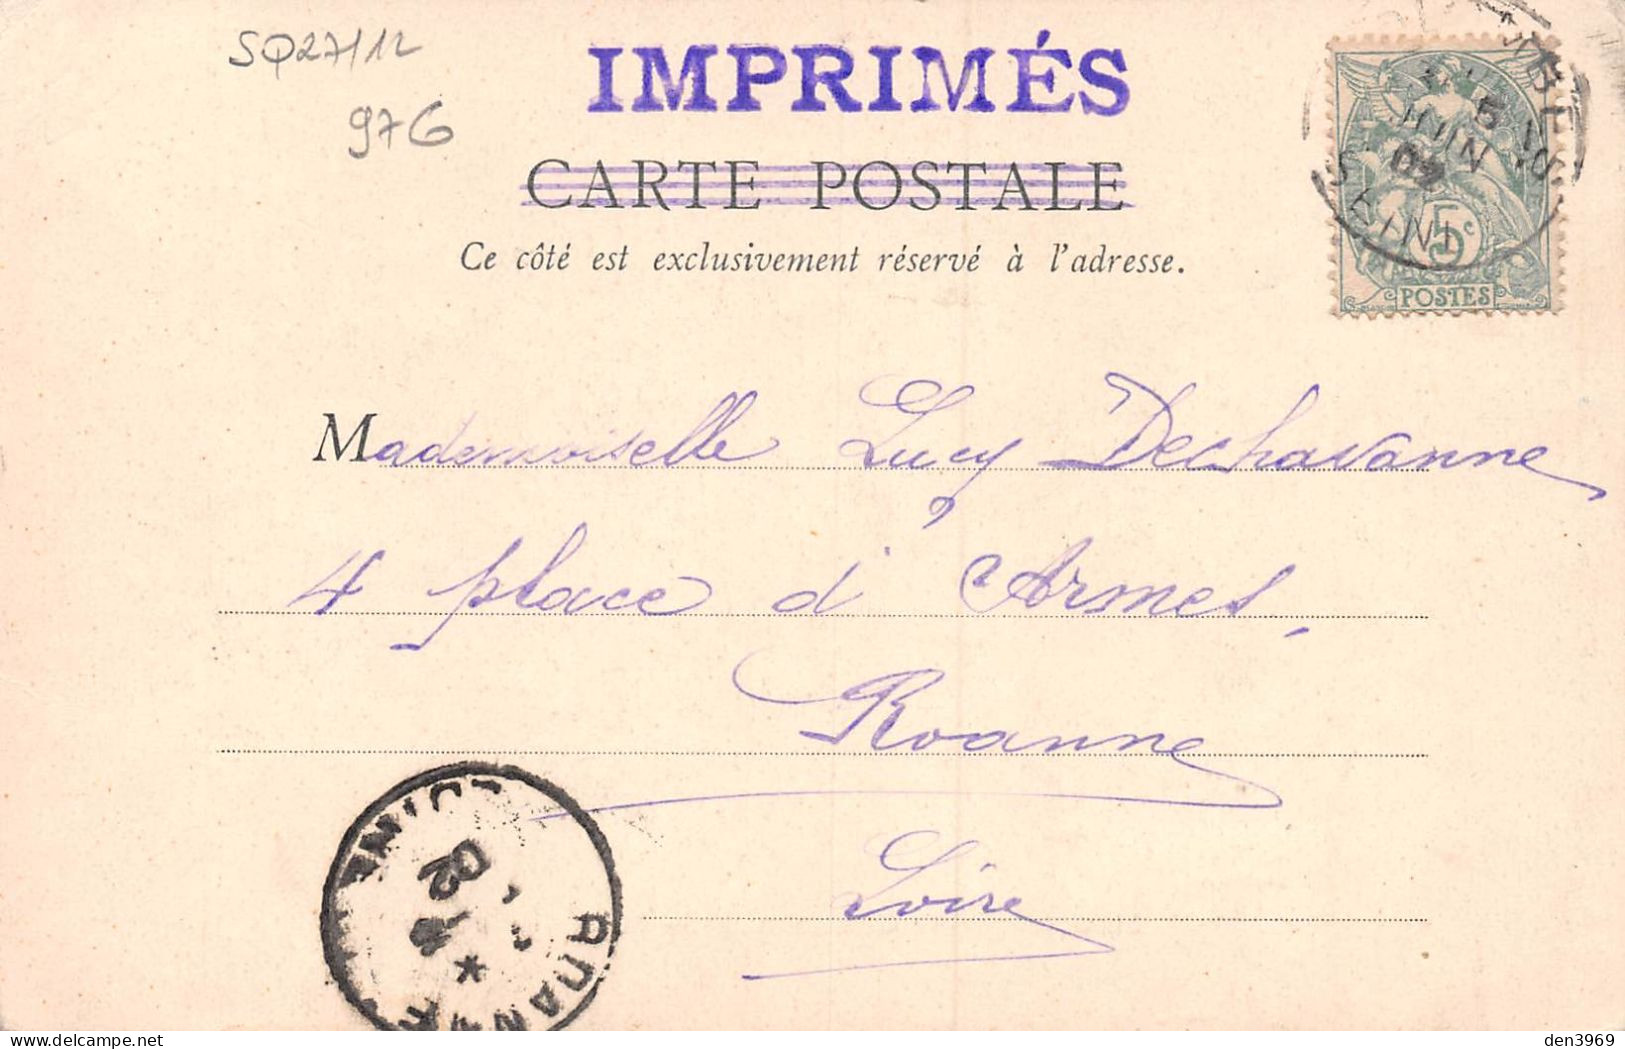 SQ27/12
976
IMPRIMÉS
CARTE POSTALE
Ce côté est exclusivement réservé à l'adresse.
5c
POSTES
JUIN
02
Mademoiselle Lucy Dechavanne
4 place d'Armes,
Roanne
Loire
02
den3969